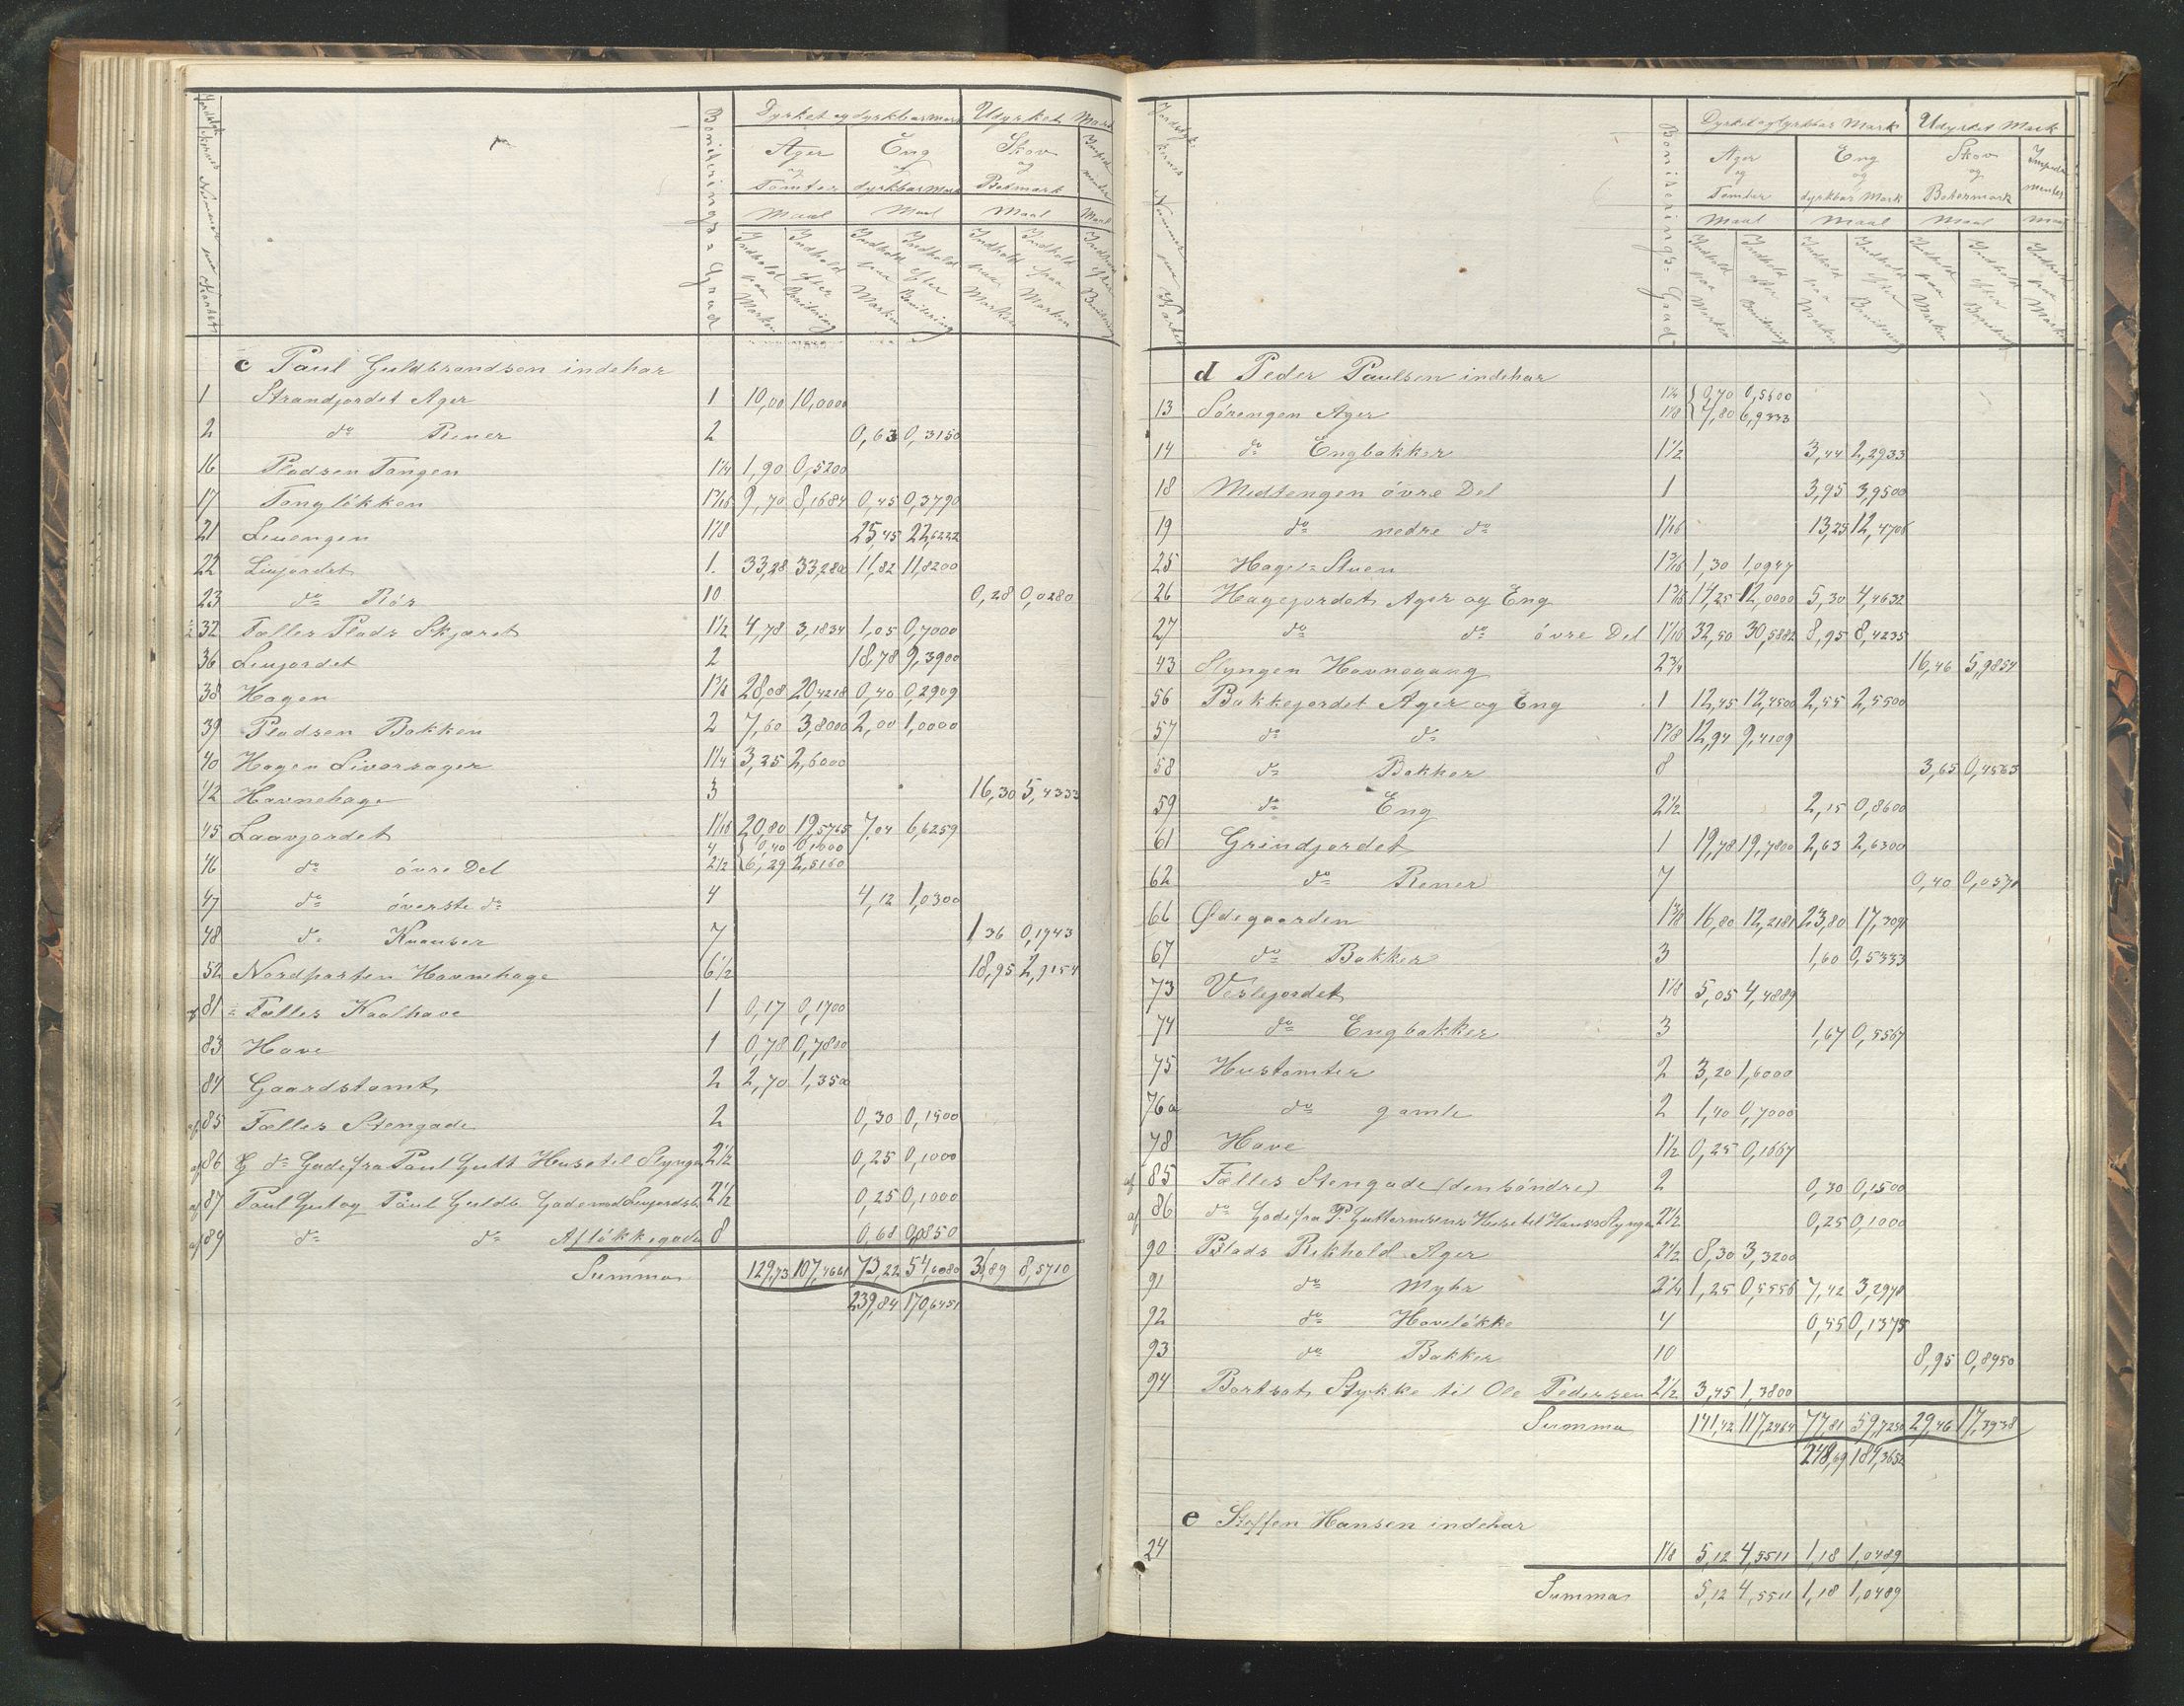 Dyrket og dyrkbar Mark Udyrket Mark
Ager og Tomter Eng og dyrkbar Mark Skov og Betmark
Maal Maal Maal Maal
Boniterings-Grad
Indhold paa Marken Indhold efter Bonitering Indhold paa Marken Indhold efter Bonitering Indhold paa Marken Indhold paa Marken
c Paul Guldbrandsen indehar
1 Strandjordet Ager 1 10,00 10,0000
2 do Rener 2 0,63 0,3150
16 Pladsen Tangen 1 1/4 1,90 0,5200
17 Tangløkken 1 3/16 9,70 8,1684 0,45 0,3790
21 Liuengen 1 1/8 25,45 22,6222
22 Liujordet 1. 33,28 33,2800 11,82 11,8200
23 do Rós 10 0,28 0,0280
1/2 32 Fælles Plads Skjæret 1 1/2 4,78 3,1834 1,05 0,7000
36 Liujordet 2 18,78 9,3900
38 Hagen 1 3/8 28,08 20,4218 0,40 0,2909
39 Pladsen Bakken 2 7,60 3,8000 2,00 1,0000
40 Hagen Siversager 1 1/4 3,25 2,6000
42 Havnehage 3 16,30 5,4333
45 Laavjordet 1 1/16 20,80 19,5765 7,04 6,6259
4 0,40 0,1000
46 do óvre Del 2 1/2 6,29 2,5160
47 do óverste do 4 4,12 1,0300
48 do Knauser 7 1,36 0,1943
52 Nordparten Havnehage 6 1/2 18,95 2,9154
81 Fælles Kaalhave 1 0,17 0,1700
83 Have 1 0,78 0,7800
84 Gaardstomt 2 2,70 1,350
af 85 Fælles Stengade 2 0,30 0,1500
af 86 do Gade fra Paul Gutt Huse til Slyngen 2 1/2 0,25 0,1000
af 87 Paul Gut og Paul Guldb Gade ved Liujordet 2 1/2 0,25 0,1000
af 89 do do Afløkkegade 8 0,68 0,0850
Summa 129,73 107,4661 73,22 54,6080 36,89 8,5710
239,84 170,6451
Dyrket og dyrkbar Mark Udyrket Mark
Ager og Tomter Eng og dyrkbar Mark Skov og Betesmark
Maal Maal Maal Maal
Boniterings-Grad
Indhold paa Marken Indhold efter Bonitering Indhold paa Marken Indhold efter Bonitering Indhold paa Marken Indhold efter Bonitering Indhold paa Marken
d Peder Paulsen indehar
1 1/4 0,70 0,5600
13 Sørengen Ager 1 1/8 7,80 6,9333
14 do Engbakker 1 1/2 3,44 2,2933
18 Midtengen óvre Del 1 3,95 3,9500
19 do nedre do 1 1/16 13,25 12,4706
25 Hage-Stuen 1 3/16 1,30 1,0947
26 Hagejordet Ager og Eng 1 3/16 14,25 12,0000 5,30 4,4632
27 do do óvre Del 1 1/16 32,50 30,5882 8,95 8,4235
43 Slyngen Havnegang 2 3/4 16,46 5,9854
56 Bakkejordet Ager og Eng 1 12,45 12,4500 2,55 2,5500
57 do do 1 3/8 12,94 9,4109
58 do Bakker 8 3,65 0,4563
59 do Eng 2 1/2 2,15 0,8600
61 Grindjordet 1 19,78 19,7800 2,63 2,6300
62 do Rener 7 0,40 0,0571
66 Ødegaarden 1 3/8 16,80 12,2181 23,80 17,3091
67 do Bakker 3 1,60 0,5333
73 Veslejordet 1 1/8 5,05 4,4889
74 do Engbakker 3 1,67 0,5567
75 Hustomter 2 3,20 1,6000
76a do gamle 2 1,40 0,7000
78 Have 1 1/2 0,25 0,1667
af 85 Fælles Stengade (den søndre) 2 0,30 0,1500
af 86 do Gade fra P. Guttormsens Huse til Hans Slyngen 2 1/2 0,25 0,1000
90 Plads Rekhold Ager 2 1/2 8,30 3,3200
91 do Myhr 2 1/4 1,25 0,5556 7,42 3,2978
92 do Haveløkke 4 0,55 0,1375
93 do Bakker 10 8,95 0,8950
94 Bortsat Stykke til Ole Pedersen 2 1/2 3,45 1,3800
Summa 141,42 117,2464 77,81 59,7250 29,46 17,3938
248,69 184,3652
e Steffen Hansen indehar
24 1 1/8 5,12 4,5511 1,18 1,0489
Summa 5,12 4,5511 1,18 1,0489